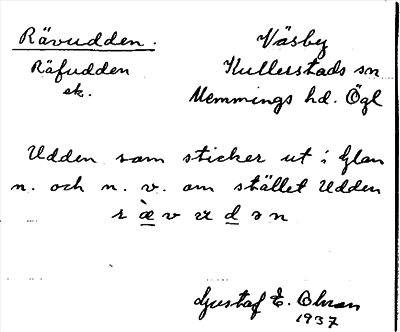 Rävudden.
Väsby
Räfudden
Kullerstads sn
ek.
Memmings hd. Ögl
Udden som sticker ut i Glan
n. och n. v. om stället Udden
r æ̀ v ɯ d ə n
Gustaf E. Ohman
1937